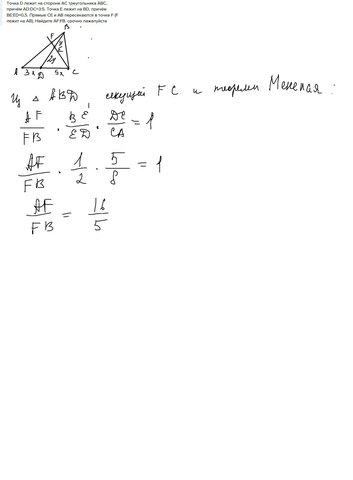 Точка D лежит на стороне AC треугольника ABC,
причём AD:DC=3:5. Точка E лежит на BD, причём
BE:ED=0,5. Прямые CE и AB пересекаются в точке F (F
лежит на AB). Найдите AF:FB. срочно пожалуйста
B
F
y
E
2y
A 3x D 5x C
Из △ ABD, секущей FC и теоремы Менелая:
AF/FB · BE/ED · DC/CA = 1
AF/FB · 1/2 · 5/8 = 1
AF/FB = 16/5